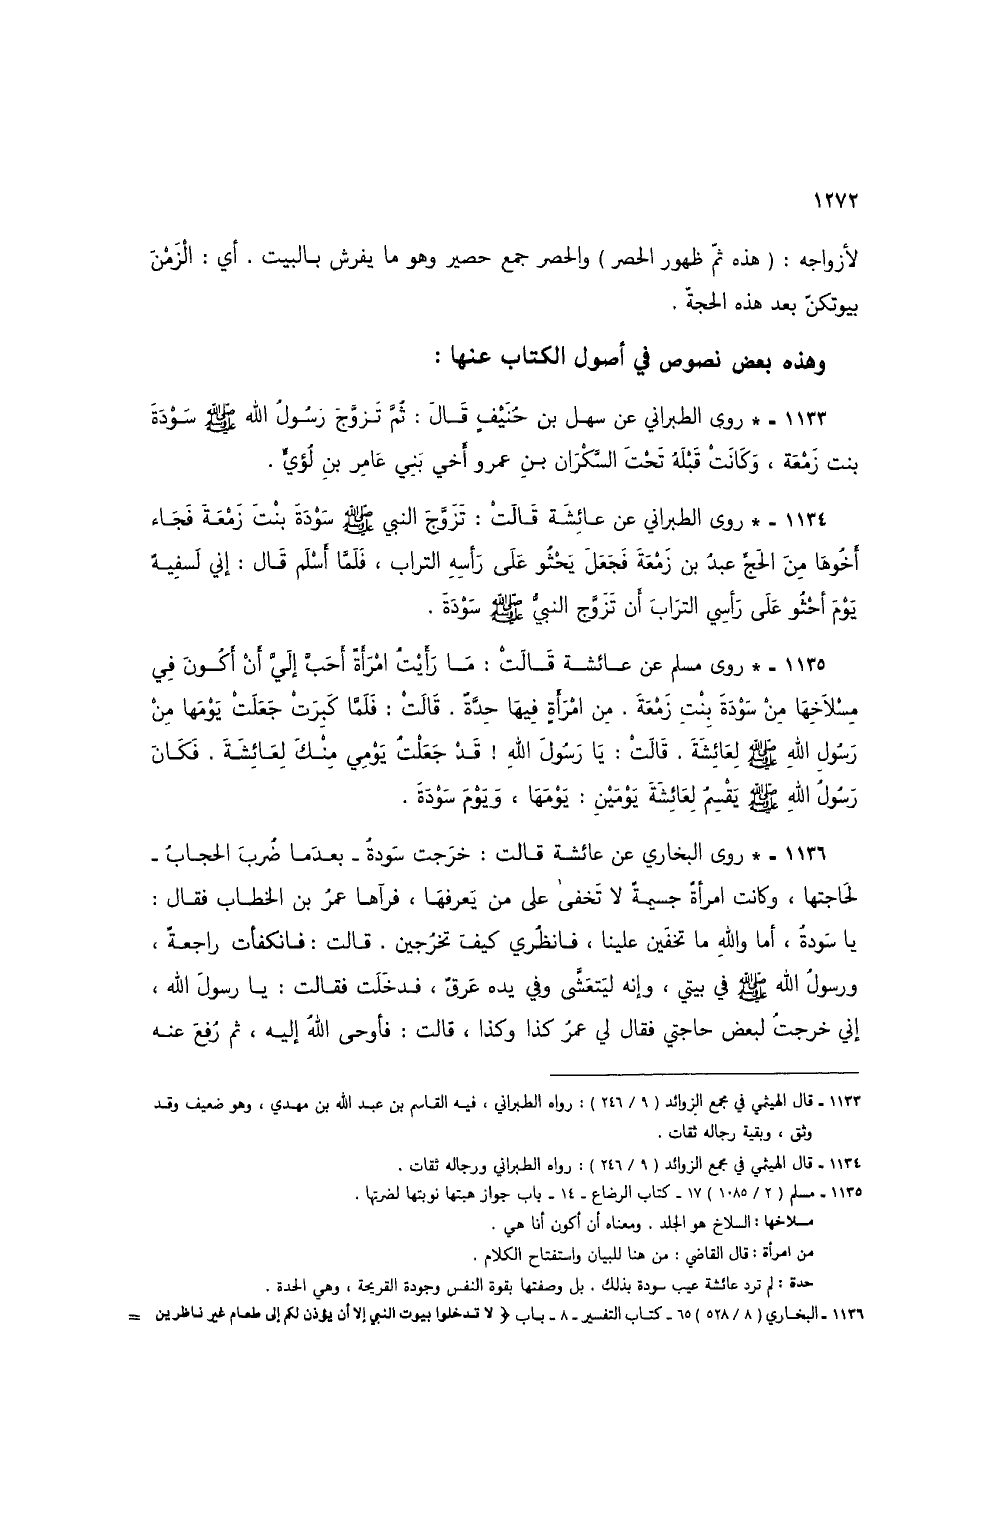 ١٢٧٢
لأزواجه : ( هذه ثمّ ظهور الحصر ) والحصر جمع حصير وهو ما يفرش بالبيت . أي : الْزَمْنَ
بيوتكنّ بعد هذه الحجة .
وهذه بعض نصوص في أصول الكتاب عنها :
١١٣٣ - * روى الطبراني عن سهل بن حُنَيْفٍ قَالَ : ثُمَّ تَزوَّجَ رَسُولُ الله ﷺ سَوْدَةَ
بنت زَمْعَة ، وَكَانَتْ قَبْلَهُ تَحْتَ السَّكْرَان بنِ عمرو أَخي بَنِي عَامِر بنِ لُؤيٍّ .
١١٣٤ - * روى الطبراني عن عائِشَة قَالَتْ : تَزَوَّجَ النبي ﷺ سَوْدَةَ بنْتَ زَمْعَةَ فَجَاء
أَخُوهَا مِنَ الحَجِّ عبدُ بن زَمْعَةَ فَجَعَلَ يَحْثُو عَلَى رَأسِهِ التراب ، فَلَمَّا أَسْلَم قَال : إني لَسفِيهٌ
يَوْمَ أحْثُو عَلَى رَأسِي الترَابَ أَن تَزَوَّج النبيُّ ﷺ سَوْدَةَ .
١١٣٥ - * روى مسلم عن عائشة قَالَتْ : مَا رَأَيْتُ امْرَأَةً أَحَبَّ إلَيَّ أَنْ أَكُونَ فِي
مِسْلاَخِهَا مِنْ سَوْدَةَ بِنْتِ زَمْعَةَ . مِن امْرَأَةٍ فِيهَا حِدَّةٌ . قَالَتْ : فَلَمَّا كَبِرَتْ جَعَلَتْ يَوْمَها مِنْ
رَسُول اللهِ ﷺ لِعَائِشَةَ . قَالَتْ : يَا رَسُولَ اللهِ ! قَدْ جَعَلْتُ يَوْمِي مِنْكَ لِعَائِشَةَ . فَكَانَ
رَسُولُ اللهِ ﷺ يَقْسِمُ لِعَائِشَةَ يَوْمَيْنِ : يَوْمَهَا ، وَيَوْمَ سَوْدَةَ .
١١٣٦ - * روى البخاري عن عائشة قالت : خرَجت سَودةُ - بعدَما ضُربَ الحجابُ -
لحَاجتها ، وكانت امرأةً جسيمةً لا تَخفىٰ على من يَعرفهَا ، فرآها عمرُ بن الخطاب فقال :
يا سَودةُ ، أما واللهِ ما تخفَين علينا ، فانظُري كيفَ تخرُجين . قالت : فانكفأت راجعةً ،
ورسولُ الله ﷺ في بيتي ، وإنه ليَتعَشَّى وفي يده عَرقٌ ، فدخَلَت فقالت : يا رسولَ الله ،
إني خرجتُ لبعض حاجتي فقال لي عمرُ كذا وكذا ، قالت : فأوحى اللهُ إليه ، ثم رُفعَ عنه
١١٣٣ - قال الهيثمي في مجمع الزوائد ( ٩ / ٢٤٦ ) : رواه الطبراني ، فيه القاسم بن عبد الله بن مهدي ، وهو ضعيف وقد
وثق ، وبقية رجاله ثقات .
١١٣٤ - قال الهيثمي في مجمع الزوائد ( ٩ / ٢٤٦ ) : رواه الطبراني ورجاله ثقات .
١١٣٥ - مسلم ( ٢ / ١٠٨٥ ) ١٧ - كتاب الرضاع - ١٤ - باب جواز هبتها نوبتها لضرتها .
مسلاخها : السلاخ هو الجلد . ومعناه أن أكون أنا هي .
من امرأة : قال القاضي : من هنا للبيان واستفتاح الكلام .
حدة : لم ترد عائشة عيب سودة بذلك . بل وصفتها بقوة النفس وجودة القريحة ، وهي الحدة .
١١٣٦ - البخاري ( ٨ / ٥٢٨ ) ٦٥ - كتاب التفسير - ٨ - باب ﴿ لا تدخلوا بيوت النبي إلا أن يؤذن لكم إلى طعام غير ناظرين =